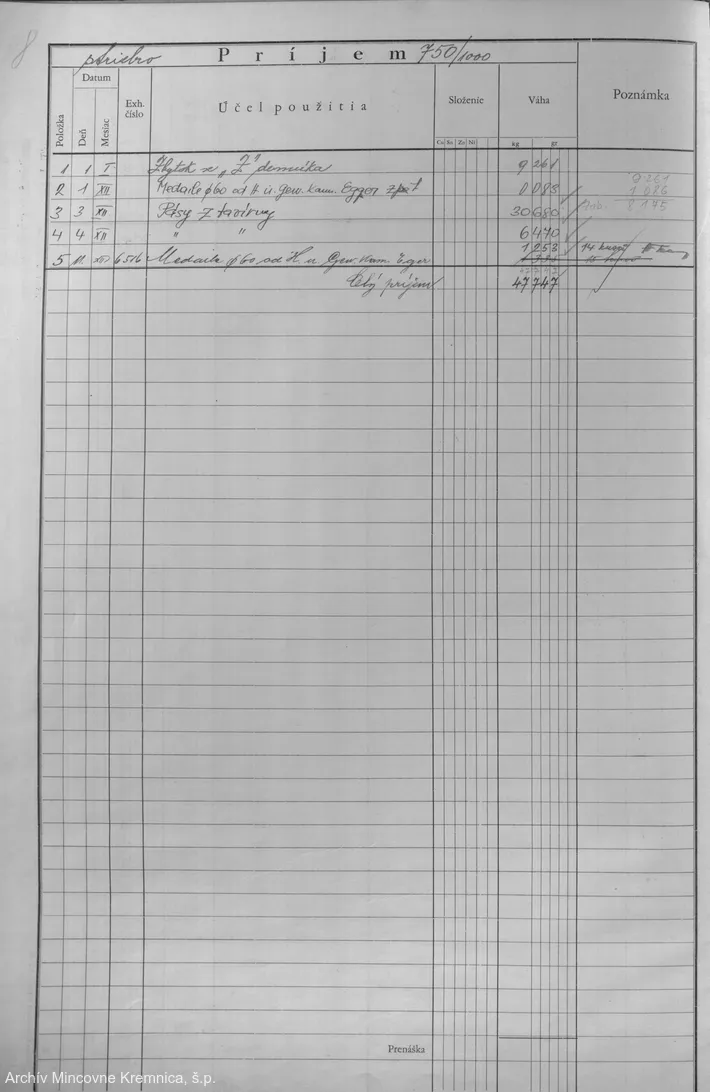 8
striebro Príjem 750/1000
Datum
Položka Deň Mesiac Exh. číslo Účel použitia Složenie Váha Poznámka
Cu Sn Zn Ni kg gr
1 1 I Zbytok z „Z" denníka 9 261
2 1 XII Medaile φ60 od H. u. Gew. kam. Egger zpät 0 083 9 261
1 086
3 3 XII Pásy z taviarny 30 680 8 175
4 4 XII " " 6 470
5 11. XII 6516 Medaile φ60 od H. u. Gew. Kam. Eger 1 253 14 kusov
47 747
Celý príjem 47 747
Prenáška
Archív Mincovne Kremnica, š.p.